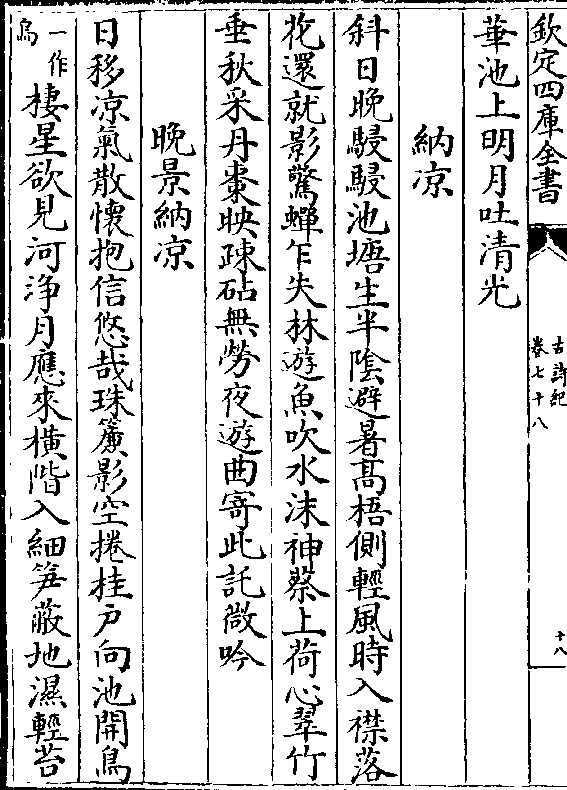 欽定四庫全書
古詩紀
卷七十八
十八
華池上明月吐清光
納凉
斜日晚駸駸池塘生半陰避暑髙梧側輕風時入襟落
花還就影驚蟬乍失林遊魚吹水沫神蔡上荷心翠竹
垂秋采丹棗映疎砧無勞夜遊曲寄此託微吟
晩景納凉
日移凉氣散懷抱信悠哉珠簾影空捲桂户向池開鳥
一作
烏
棲星欲見河淨月應來橫階入細笋蔽地濕輕苔